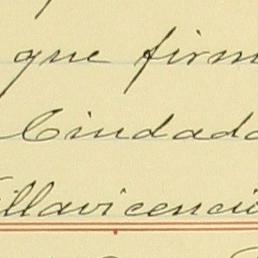 que firm
Ciudada
illavicencio